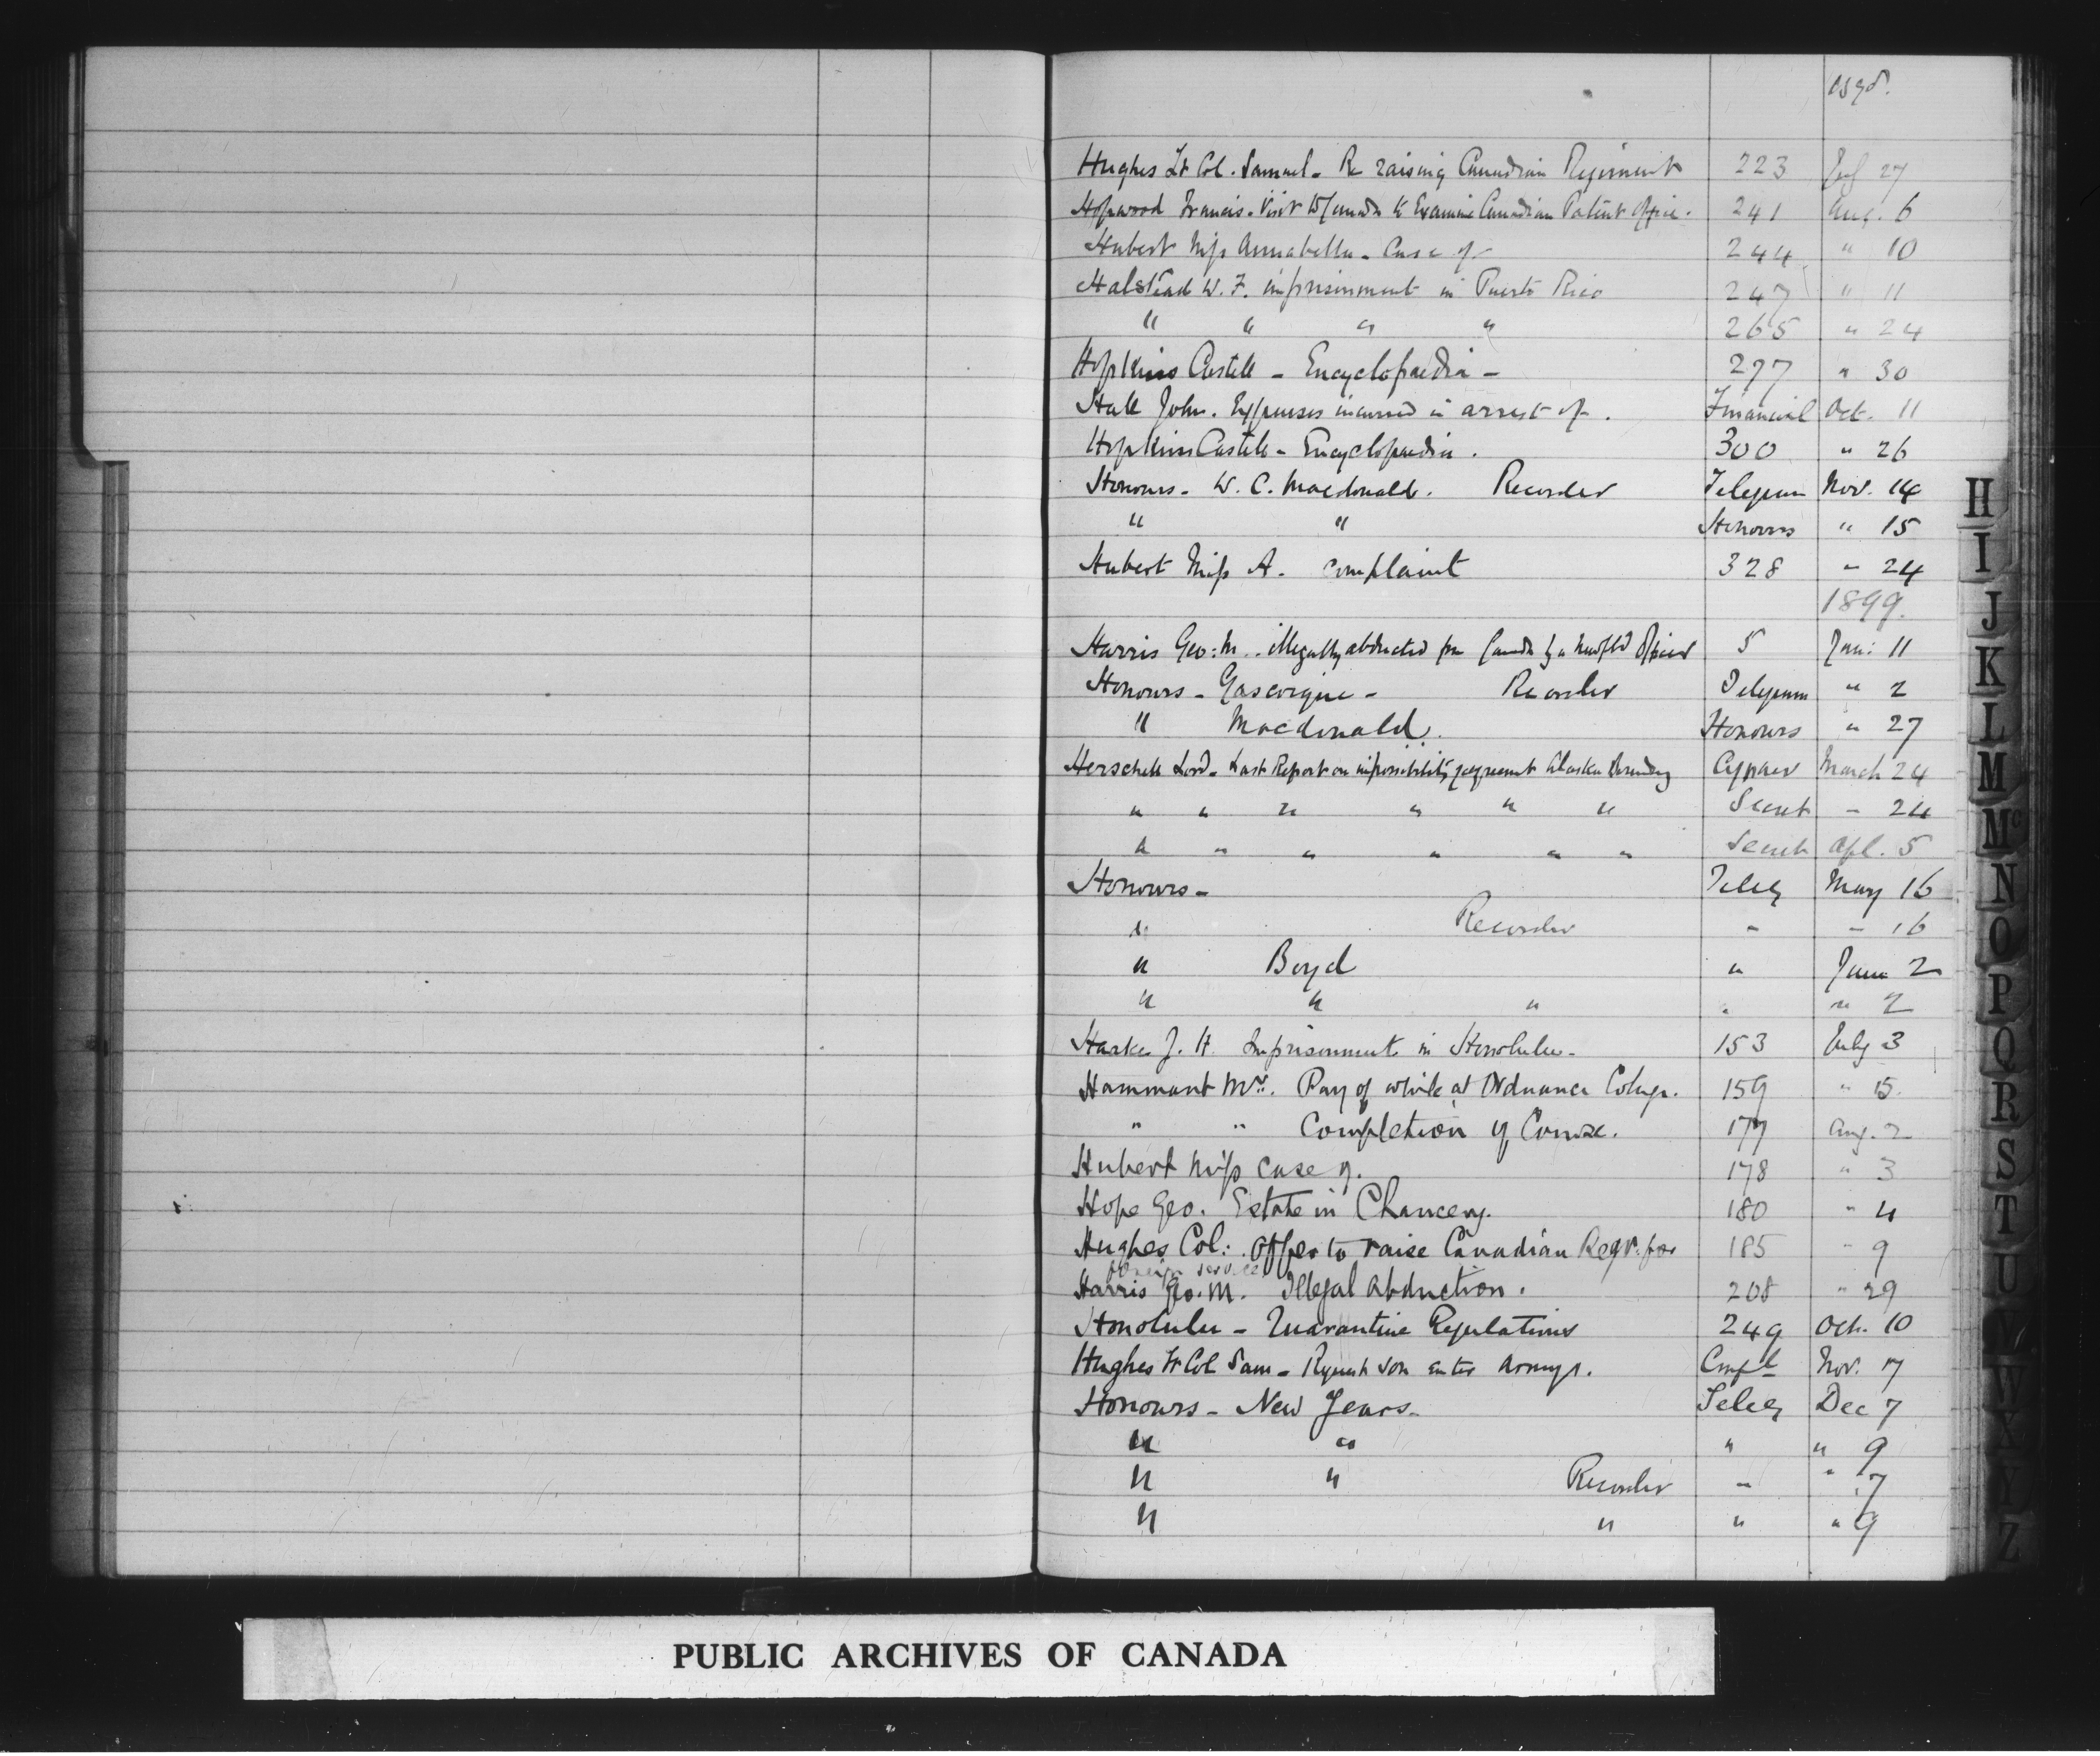 1898.
Hughes Lt Col. Samuel - Re raising Canadian Regiment 223 July 27
Hopwood Francis - Visit to Canada to Examine Canadian Patent Office. 241 Aug. 6
Hubert Miss Annabella - Case of - 244 " 10
Halstead W. F. imprisonment in Puerto Rico 247 " 11
" " " " 265 " 24
Hopkins Castell - Encyclopaedia - 297 " 30
Hall John. Expenses incurred in arrest of. Financial Oct. 11
Hopkins Castell - Encyclopaedia. 300 " 26
Honours - W. C. Macdonald. Recorder Telegram Nov. 14
" " Honours " 15
Hubert Miss A. complaint 328 " 24
1899.
Harris Geo: M.. illegally abducted from Canada by a Newfld Officer 5 Jan: 11
Honours - Gascoigne - Recorder Telegram " 2
" Macdonald. Honours " 27
Herschell Lord - Last Report on impossibility agreement Alaskan Boundary Cypher March 24
" " " " " " Secret - 24
" " " " " " Secret Apl. 5
Honours - Teleg May 16
" Recorder - - 16
" Boyd " June 2
" " " " " 2
J. H. Imprisonment in Honolulu - 153 July 3
Hammant Mr. Pay of while at Ordnance College. 159 " 15.
" " Completion of Course. 177 Aug. 2
Hubert Miss case of. 178 " 3
Hope Geo. Estate in Chancery. 180 " 4
Hughes Col: Offer to raise Canadian Regt. for 185 " 9
foreign service
Harris Geo. M. Illegal Abduction. 208 " 29
Honolulu - Quarantine Regulations 249 Oct. 10
Hughes Lt Col Sam - Request son enter Army. Nov. 17
Honours - New Years - Teleg Dec 7
" " " " 9
" " Recorder - " 7
" " " " 9
H
I
J
K
L
M
Mc
N
O
P
Q
R
S
T
U
V
W
X
Y
Z
PUBLIC ARCHIVES OF CANADA